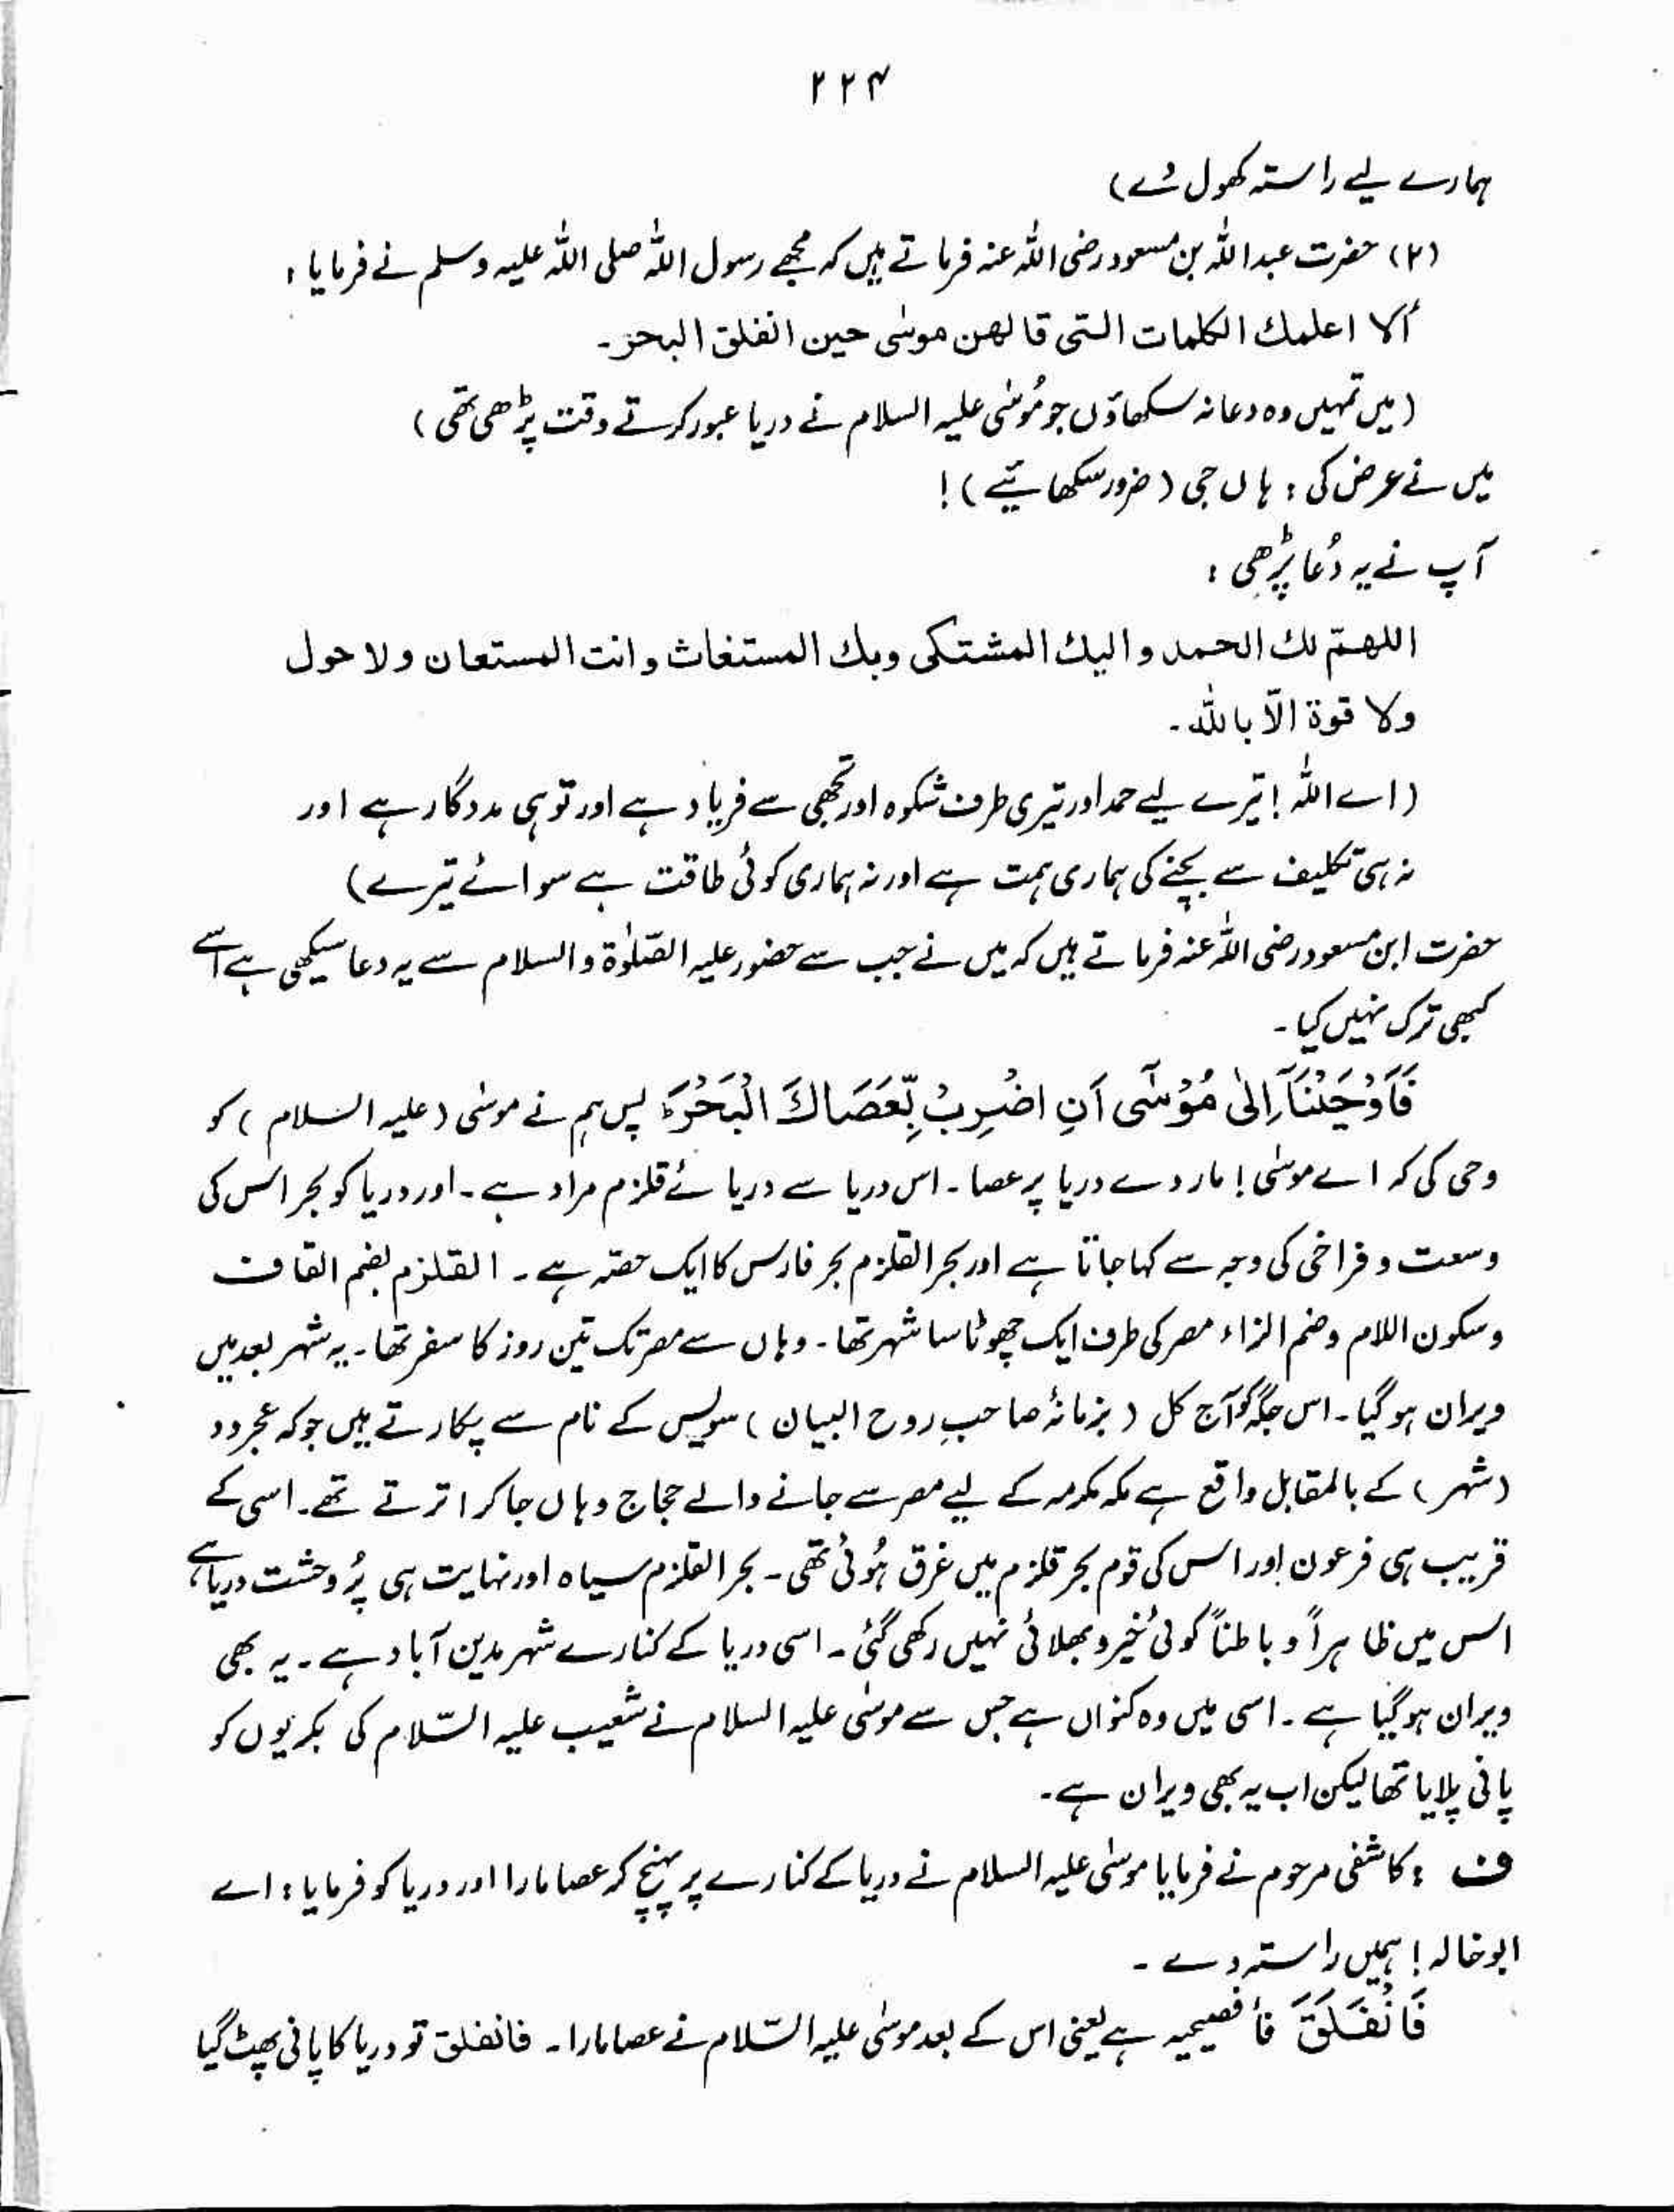 ۲۲۴
ہمارے لیے راستہ کھول دے)
(۲) حضرت عبداللہ بن مسعود رضی اللہ عنہ فرماتے ہیں کہ مجھے رسول اللہ صلی اللہ علیہ وسلم نے فرمایا :
ألا اعلمك الكلمات التی قالھن موسٰی حین انفلق البحر۔
(میں تمہیں وہ دعا نہ سکھاؤں جو مُوسٰی علیہ السلام نے دریا عبور کرتے وقت پڑھی تھی)
میں نے عرض کی : ہاں جی (ضرور سکھائیے)!
آپ نے یہ دُعا پڑھی :
اللھمّ لك الحمد و الیك المشتکی وبك المستغاث و انت المستعان ولا حول
ولا قوۃ الّا باللہ۔
(اے اللہ ! تیرے لیے حمد اور تیری طرف شکوہ اور تجھی سے فریاد ہے اور تو ہی مددگار ہے اور
نہ ہی تکلیف سے بچنے کی ہماری ہمت ہے اور نہ ہماری کوئی طاقت ہے سوائے تیرے)
حضرت ابن مسعود رضی اللہ عنہ فرماتے ہیں کہ میں نے جب سے حضور علیہ الصّلوٰۃ والسلام سے یہ دعا سیکھی ہے اسے
کبھی ترک نہیں کیا۔
فَاَوْحَیْنَآ اِلٰی مُوْسٰٓی اَنِ اضْرِبْ بِّعَصَاكَ الْبَحْرَ پس ہم نے موسٰی (علیہ السلام) کو
وحی کی کہ اے موسٰی ! مار دے دریا پر عصا۔ اس دریا سے دریائے قلزم مراد ہے۔ اور دریا کو بحر اس کی
وسعت و فراخی کی وجہ سے کہا جاتا ہے اور بحر القلزم بحر فارس کا ایک حصّہ ہے۔ القلزم بضم القاف
وسکون اللام وضم الزاء مصر کی طرف ایک چھوٹا سا شہر تھا۔ وہاں سے مصر تک تین روز کا سفر تھا۔ یہ شہر بعد میں
ویران ہو گیا۔ اس جگہ کو آج کل (بزمانۂ صاحبِ روح البیان) سویس کے نام سے پکارتے ہیں جو کہ عجرود
(شہر) کے بالمقابل واقع ہے مکہ مکرمہ کے لیے مصر سے جانے والے حجاج وہاں جا کر اترتے تھے۔ اسی کے
قریب ہی فرعون اور اس کی قوم بحر قلزم میں غرق ہُوئی تھی۔ بحر القلزم سیاہ اور نہایت ہی پُر وحشت دریا ہے،
اس میں ظاہراً و باطناً کوئی خیر و بھلائی نہیں رکھی گئی۔ اسی دریا کے کنارے شہر مدین آباد ہے۔ یہ بھی
ویران ہو گیا ہے۔ اسی میں وہ کنواں ہے جس سے موسٰی علیہ السلام نے شعیب علیہ السّلام کی بکریوں کو
پانی پلایا تھا لیکن اب یہ بھی ویران ہے۔
ف : کاشفی مرحوم نے فرمایا موسٰی علیہ السلام نے دریا کے کنارے پر پہنچ کر عصا مارا اور دریا کو فرمایا : اے
ابو خالد ! ہمیں راستہ دے۔
فَانْفَلَقَ فأ فصیحیہ ہے یعنی اس کے بعد موسٰی علیہ السّلام نے عصا مارا۔ فانفلق تو دریا کا پانی پھٹ گیا